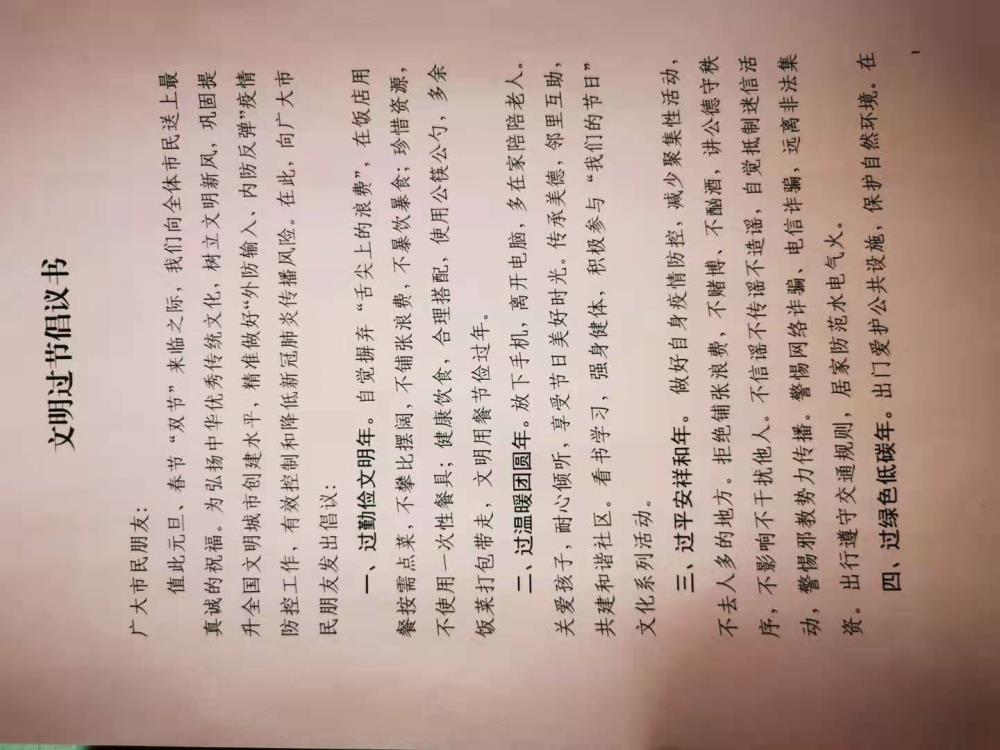 文明过节倡议书
广大市民朋友：
值此元旦、春节“双节”来临之际，我们向全体市民送上最
真诚的祝福。为弘扬中华优秀传统文化，树立文明新风，巩固提
升全国文明城市创建水平，精准做好“外防输入、内防反弹”疫情
防控工作，有效控制和降低新冠肺炎传播风险。在此，向广大市
民朋友发出倡议：
一、过勤俭文明年。自觉摒弃“舌尖上的浪费”，在饭店用
餐按需点菜，不攀比摆阔，不铺张浪费，不暴饮暴食；珍惜资源，
不使用一次性餐具；健康饮食，合理搭配，使用公筷公勺，多余
饭菜打包带走，文明用餐节俭过年。
二、过温暖团圆年。放下手机，离开电脑，多在家陪陪老人。
关爱孩子，耐心倾听，享受节日美好时光。传承美德，邻里互助，
共建和谐社区。看书学习，强身健体，积极参与“我们的节日”
文化系列活动。
三、过平安祥和年。 做好自身疫情防控，减少聚集性活动，
不去人多的地方。拒绝铺张浪费，不赌博、不酗酒，讲公德守秩
序，不影响不干扰他人。不信谣不传谣不造谣，自觉抵制迷信活
动，警惕邪教势力传播。警惕网络诈骗、电信诈骗，远离非法集
资。出行遵守交通规则，居家防范水电气火。
四、过绿色低碳年。出门爱护公共设施，保护自然环境。在
1